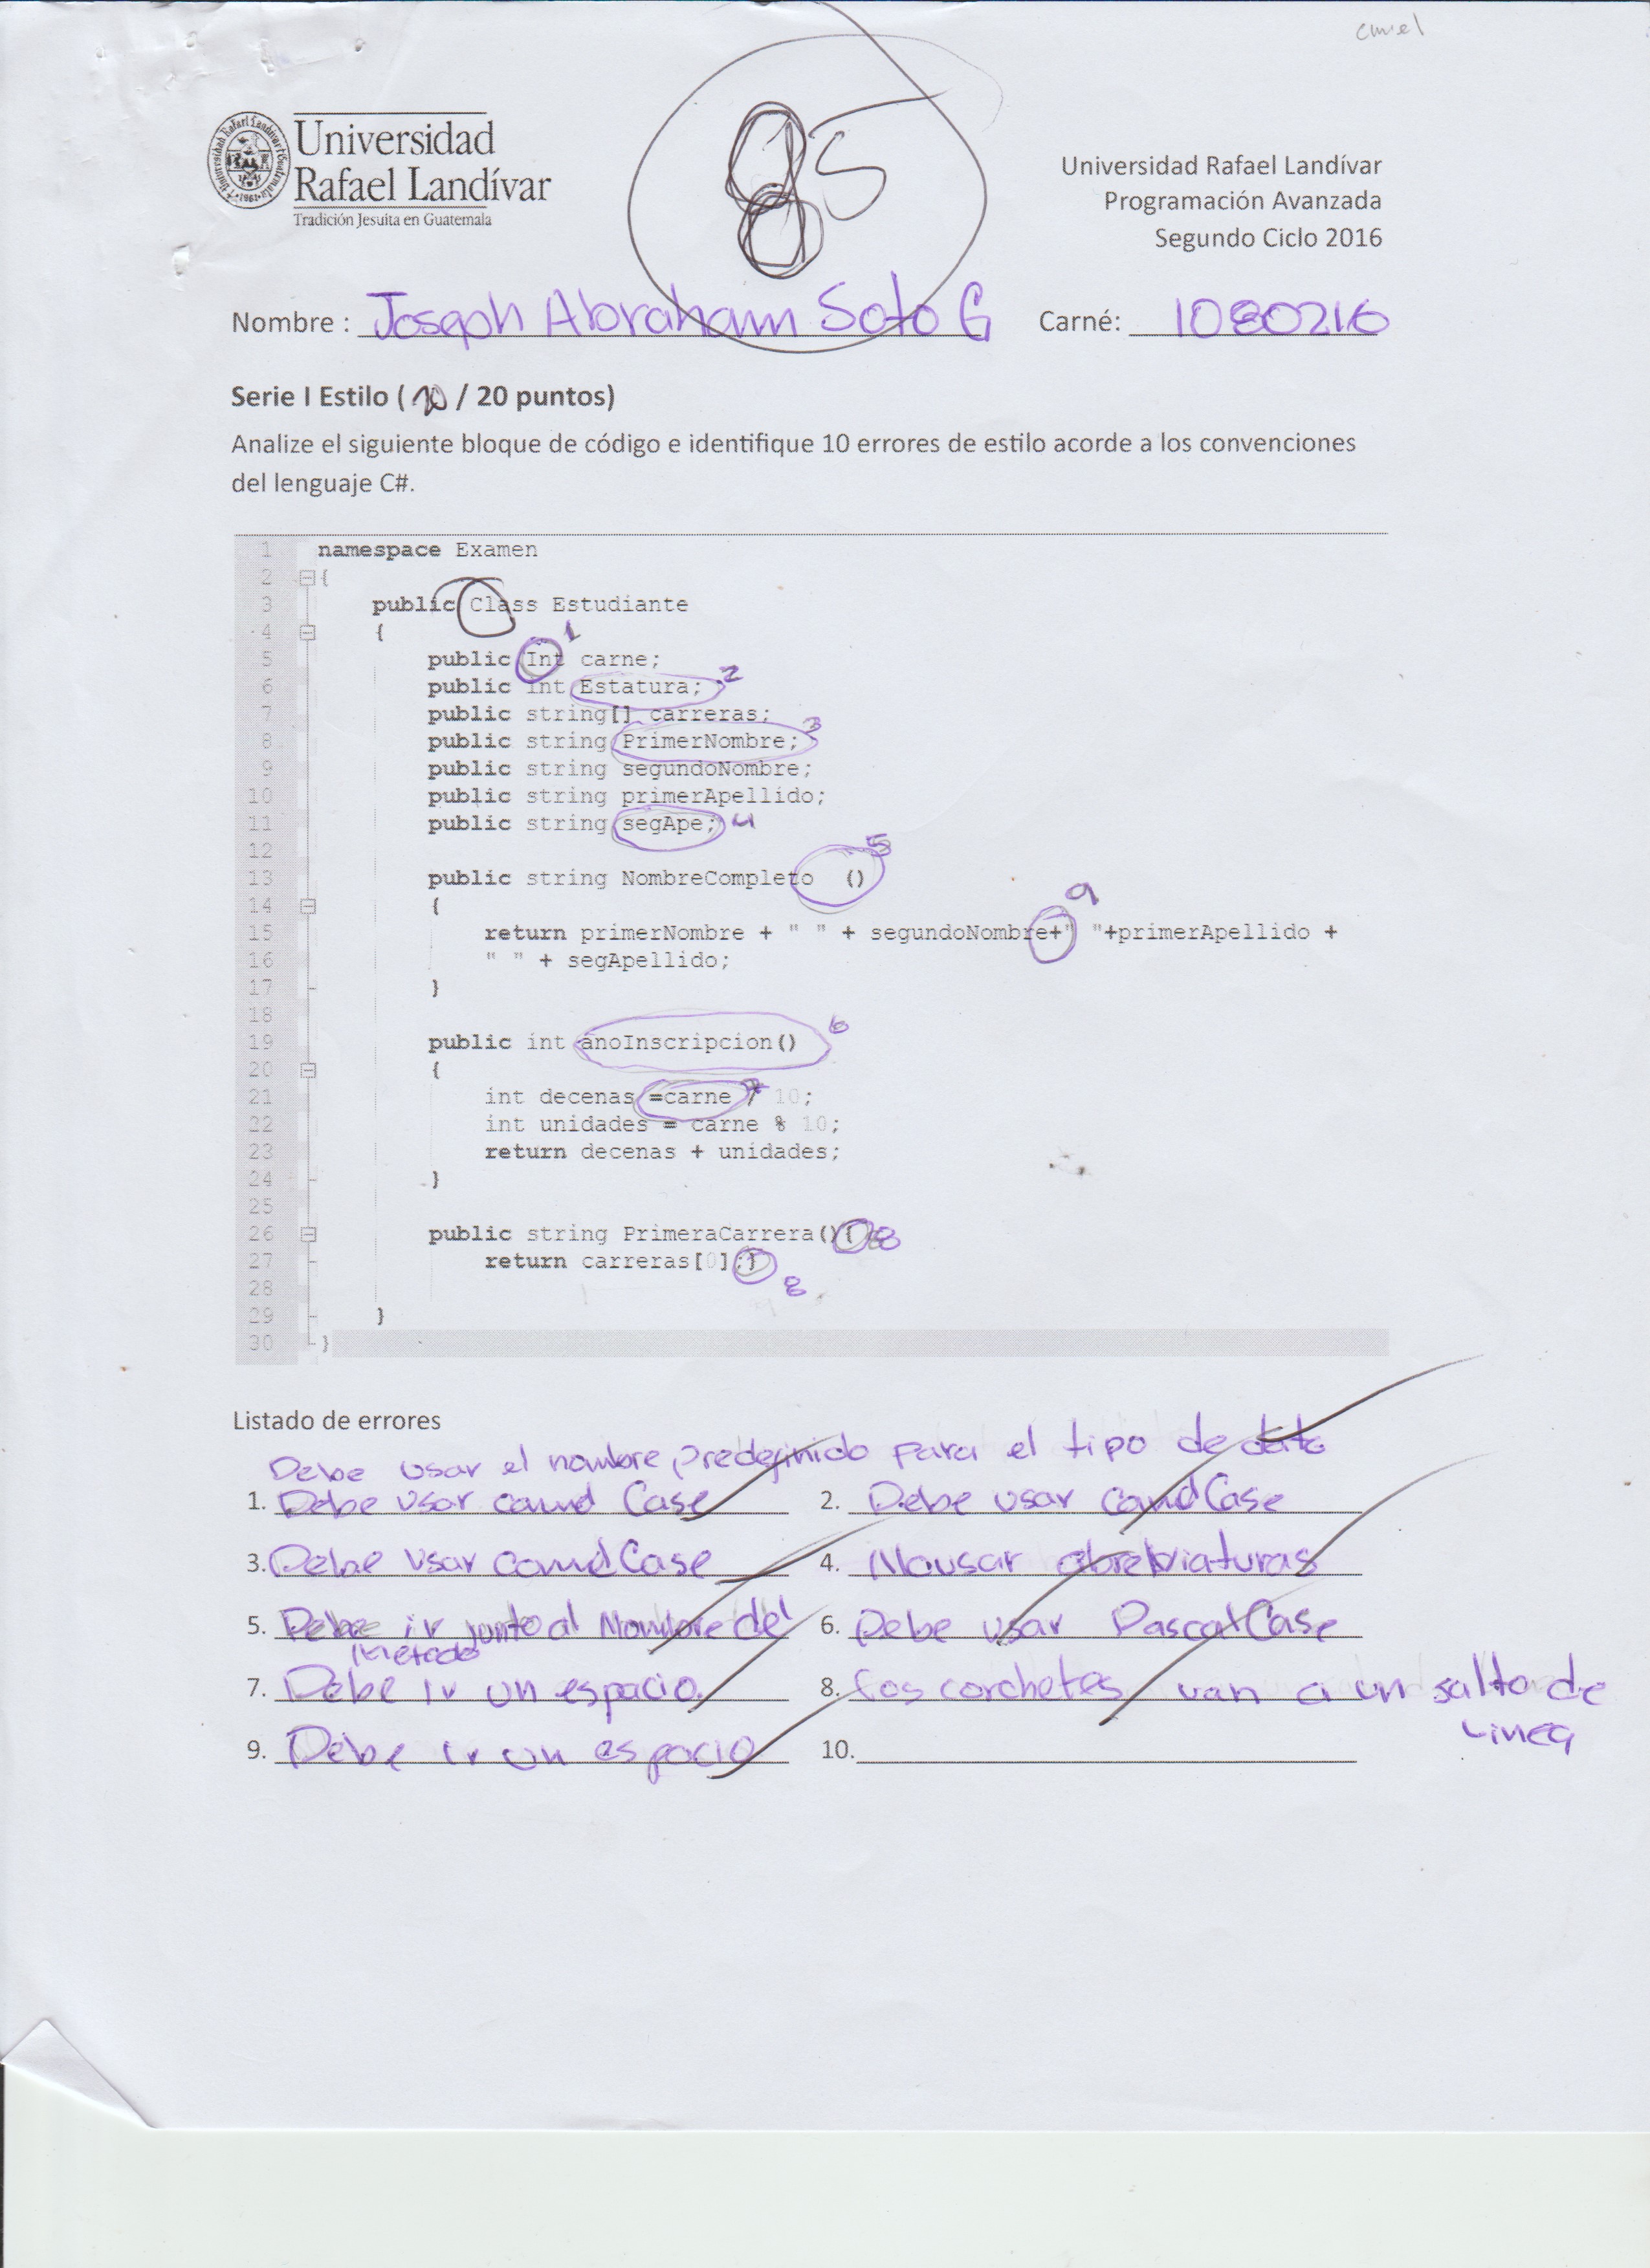 Universidad
Rafael Landívar
Tradición Jesuita en Guatemala
85
Universidad Rafael Landívar
Programación Avanzada
Segundo Ciclo 2016
Nombre : Joseph Abraham Soto G Carné: 1080216
Serie I Estilo ( / 20 puntos)
Analize el siguiente bloque de código e identifique 10 errores de estilo acorde a los convenciones
del lenguaje C#.
1 namespace Examen
2 {
3 public Class Estudiante
4 {
1
5 public Int carne;
6 public int Estatura; 2
7 public string[] carreras;
8 public string PrimerNombre; 3
9 public string segundoNombre;
10 public string primerApellido;
11 public string segApe; 4
12
13 public string NombreCompleto () 5
14 {
9
15 return primerNombre + " " + segundoNombre+" "+primerApellido +
16 " " + segApellido;
17 }
18
19 public int anoInscripcion() 6
20 {
21 int decenas =carne / 10; 7
22 int unidades = carne % 10;
23 return decenas + unidades;
24 }
25
26 public string PrimeraCarrera(){ 8
27 return carreras[0];}
8
28
29 }
30 }
Listado de errores
Debe usar el nombre predefinido para el tipo de dato
1. Debe usar camel Case 2. Debe usar camelCase
3. Debe usar camelCase 4. No usar abrebiaturas
5. Debe ir junto al Nombre del 6. Debe usar PascalCase
Metodo
7. Debe ir un espacio. 8. Los corchetes van a un salto de
Linea
9. Debe ir un espacio 10.